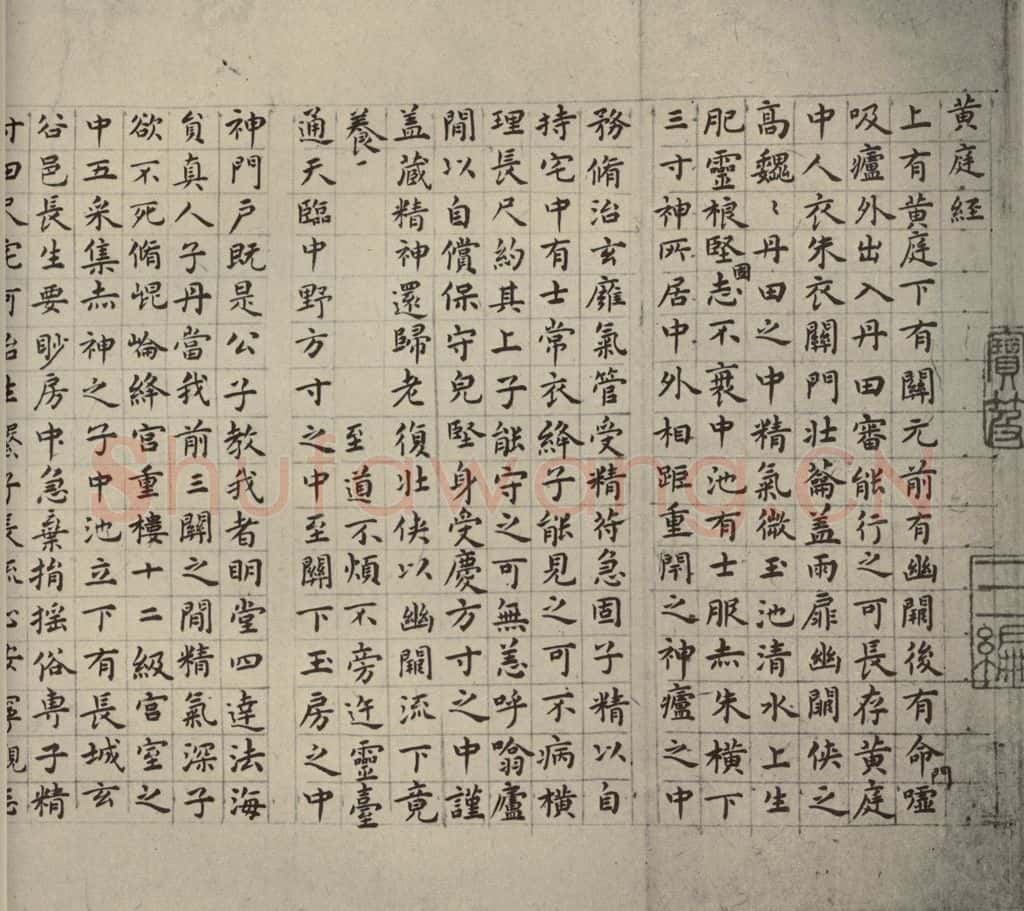 黄庭経
上有黄庭下有關元前有幽闕後有命門噓
吸廬外出入丹田審能行之可長存黄庭
中人衣朱衣關門壮蘥盖兩扉幽闕侠之
高魏〻丹田之中精氣微玉池清水上生
肥靈根堅固志不衰中池有士服赤朱横下
三寸神所居中外相距重閇之神廬之中
務脩治玄癰氣管受精苻急固子精以自
持宅中有士常衣絳子能見之可不病横
理長尺約其上子能守之可無恙呼噏廬
閒以自償保守皃堅身受慶方寸之中謹
盖藏精神還歸老復壮侠以幽闕流下竟
養 至道不煩不旁迕靈臺
通天臨中野方寸之中至關下玉房之中
神門戶既是公子教我者明堂四達法海
貟真人子丹當我前三關之閒精氣深子
欲不死脩崐崘絳宮重樓十二級宮室之
中五采集赤神之子中池立下有長城玄
谷邑長生要眇房中急棄捐揺俗専子精
寶笈
三編
Shufawang.CN